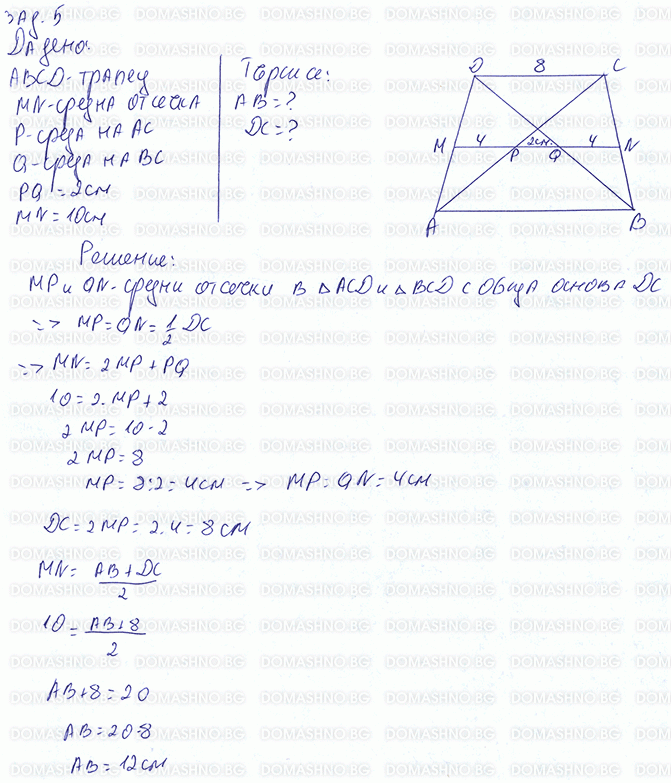 Зад. 5
Дадено:
ABCD-трапец
MN-средна отсечка
P-среда на AC
Q-среда на BC
PQ = 2см
MN = 10см
Търси се:
AB = ?
DC = ?
D 8 C
M 4 2см. 4 N
P Q
A B
Решение:
MP и QN-средни отсечки в △ACD и △BCD с обща основа DC
=> MP = QN = 1/2 DC
=> MN = 2MP + PQ
10 = 2.MP + 2
2MP = 10-2
2MP = 8
MP = 8:2 = 4см => MP = QN = 4см
DC = 2MP = 2.4 = 8см
MN = AB + DC / 2
10 = AB + 8 / 2
AB + 8 = 20
AB = 20-8
AB = 12см
DOMASHNO.BG